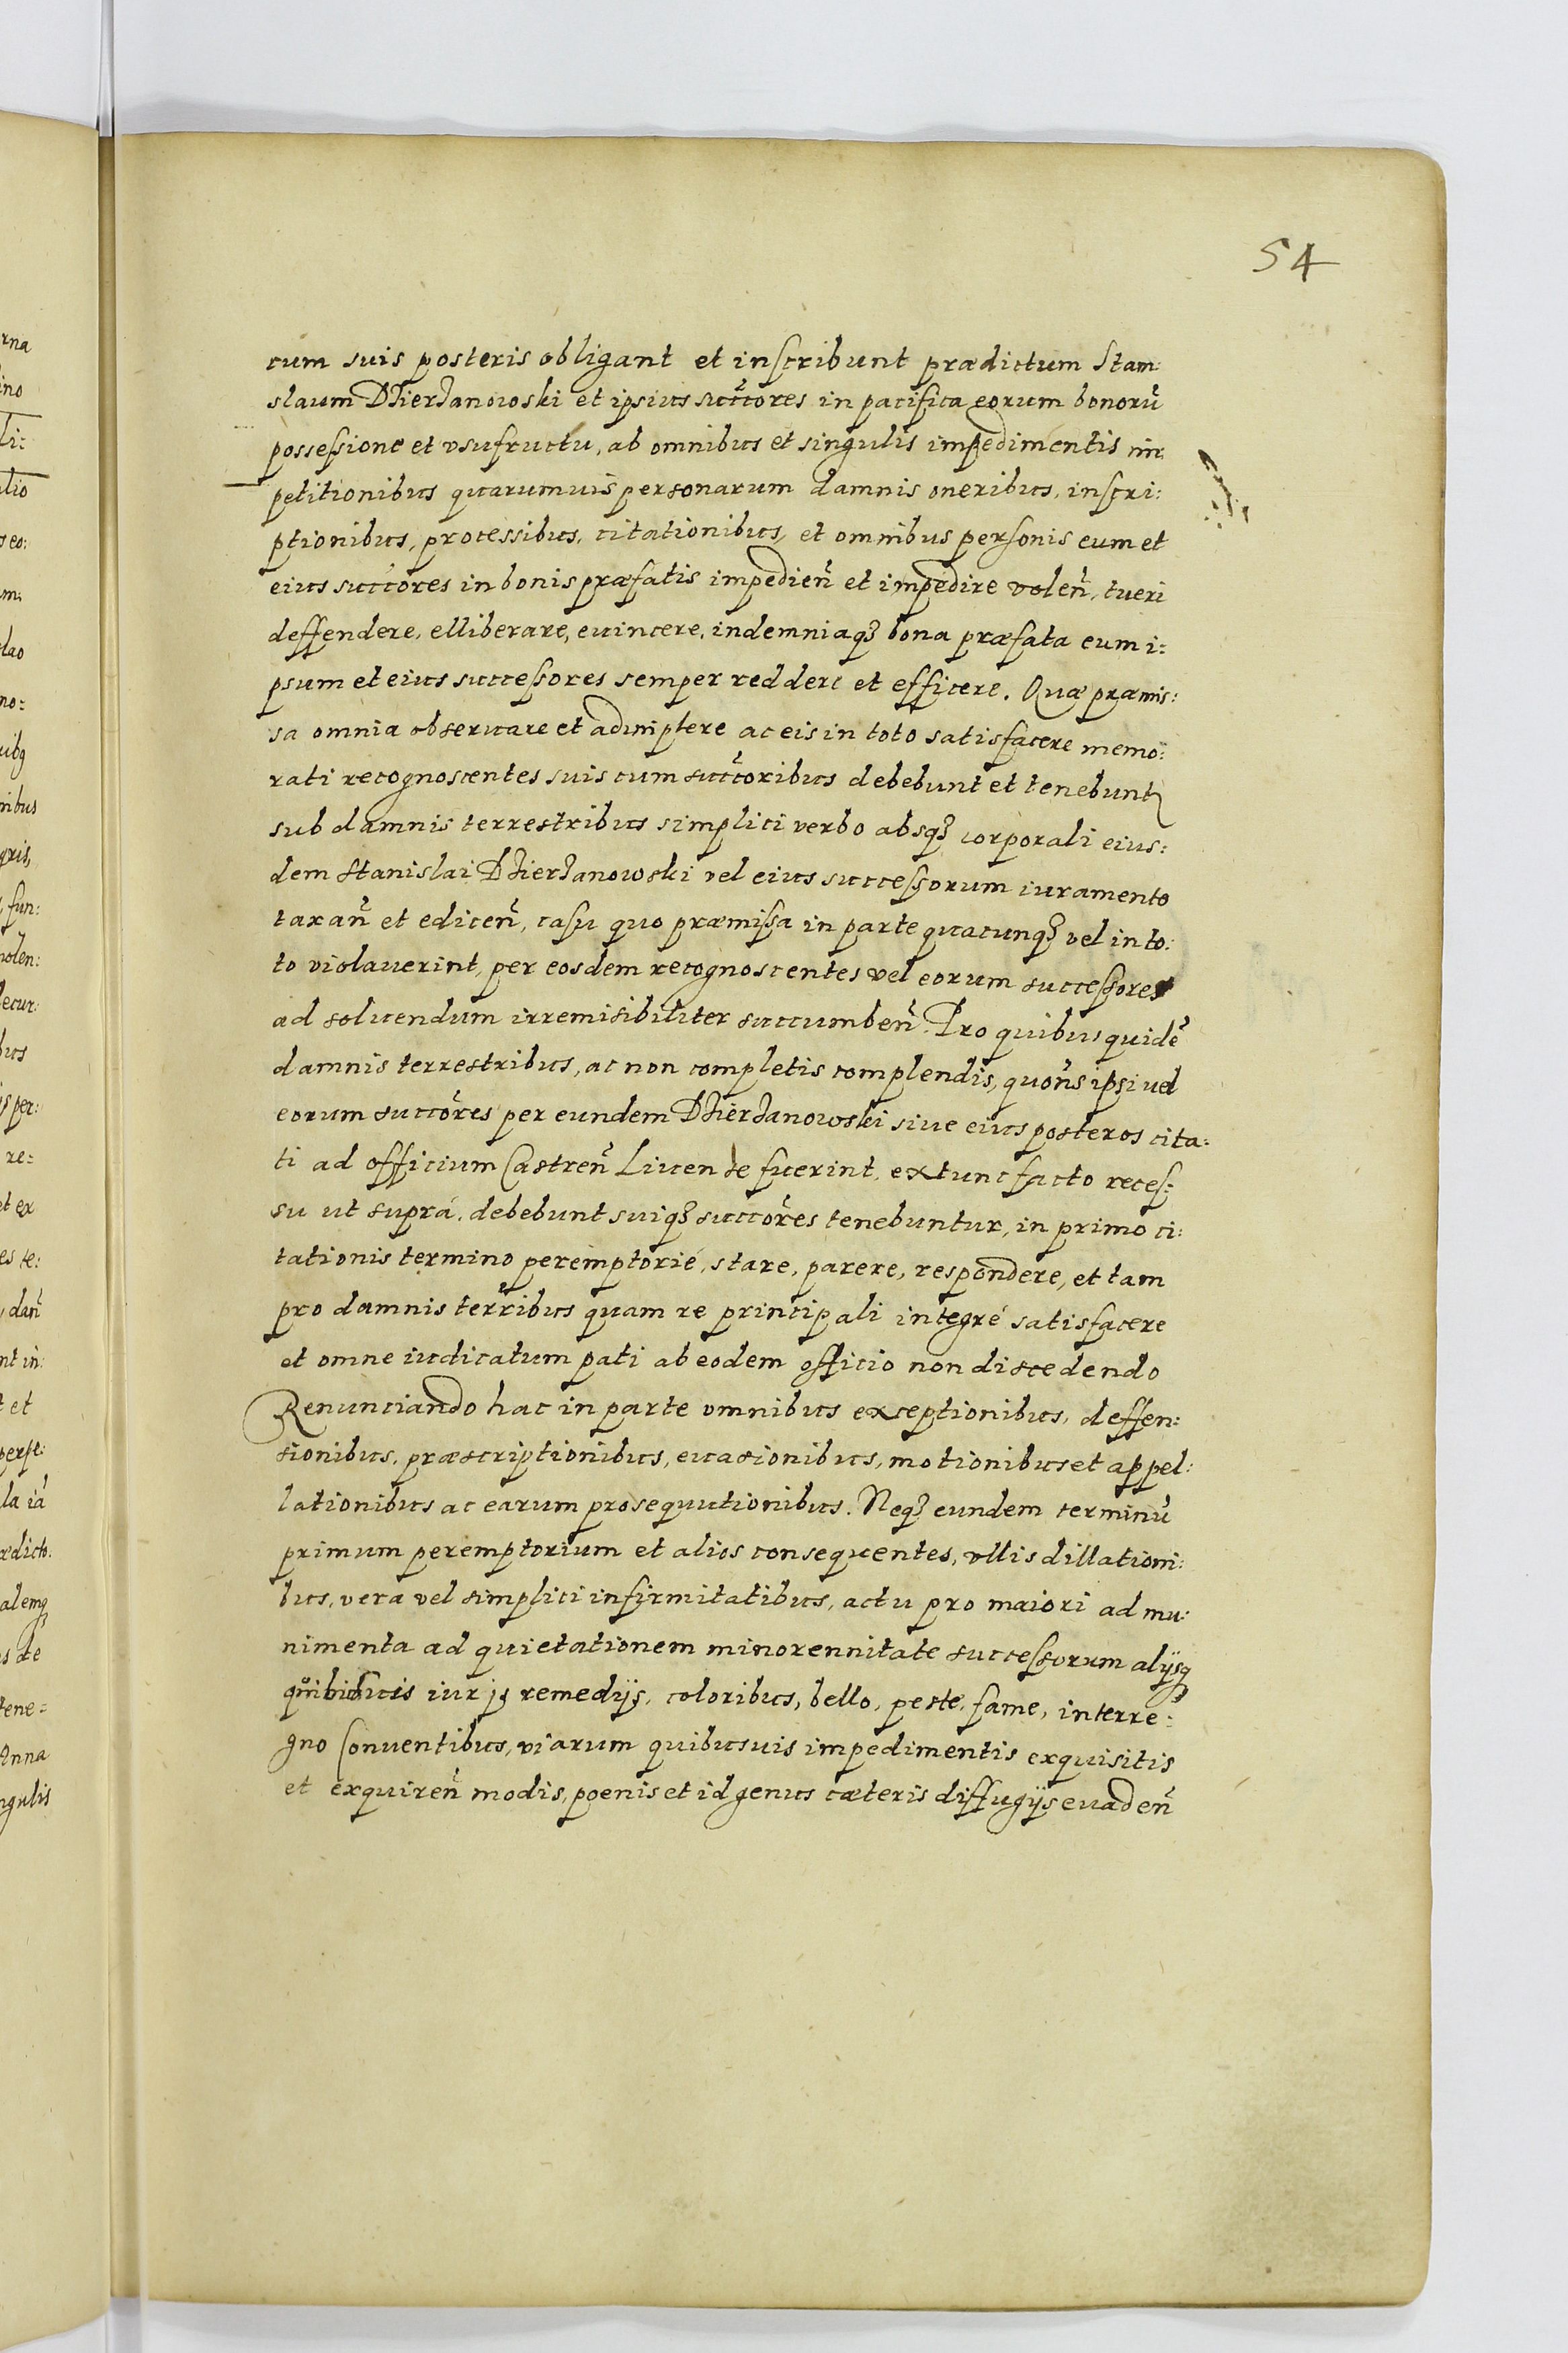 54
cum suis posteris obligant et inscribunt prædictum Stani:
slaum Dzierzanowski et ipsius succ̃tores in pacifica eorum bonorũ
possessione et vsufructu, ab omnibus et singulis impedimentis im:
petitionibus quarumuis personarum damnis oneribus, inscri:
ptionibus, processibus, citationibus, et omnibus personis eum et
eius succc̃ores in bonis præfatis impedien̄ et impedire volen̄, tueri
deffendere, elliberare, euincere, indemniaqȝ bona præfata eum i:
psum et eius successores semper reddere et efficere. Quæ præmis:
sa omnia obseruare et adimplere ac eis in toto satisfacere memo:
rati recognoscentes suis cum succ̃oribus debebunt et tenebuntꝛ
sub damnis terrestribus simplici verbo absqȝ corporali eius:
dem Stanislai Dzierzanowski vel eius successorum iuramento
taxan̄ et edicen̄, casu quo præmissa in parte quacunqȝ vel in to:
to violauerint, per eosdem recognoscentes vel eorum successores
ad soluendum irremisibiliter succumben̄. Pro quibus quidē
damnis terrestribus, ac non completis complendis, quōns ipsi vel
eorum succōres per eundem Dzierzanowski siue eius posteros cita:
ti ad officium Castren̄ Liuense fuerint, extunc facto reces:
su ut suprá, debebunt suiqȝ succōres tenebuntur, in primo ci:
tationis termino peremptorié, stare, parere, respondere, et tam
pro damnis terr̃ribus quam re principali integré satisfacere
et omne iudicatum pati ab eodem officio non discedendo
Renunciando hac in parte omnibus exceptionibus, deffen:
sionibus, præscriptionibus, euasionibus, motionibus et appel:
lationibus ac earum prosequutionibus. Neqȝ eundem terminũ
primum peremptorium et alios consequentes, vllis dillationi:
bus, vera vel simplici infirmitatibus, actu pro maiori ad mu:
nimenta ad quietationem minorennitate successorum alijsqȝ
iuris remedijs, coloribus, bello, peste, fame, interre:
gno Conuentibus, viarum quibusuis impedimentis exquisitis
et exquiren̄ modis, poenis et id genus cæteris diffugijs euaden̄